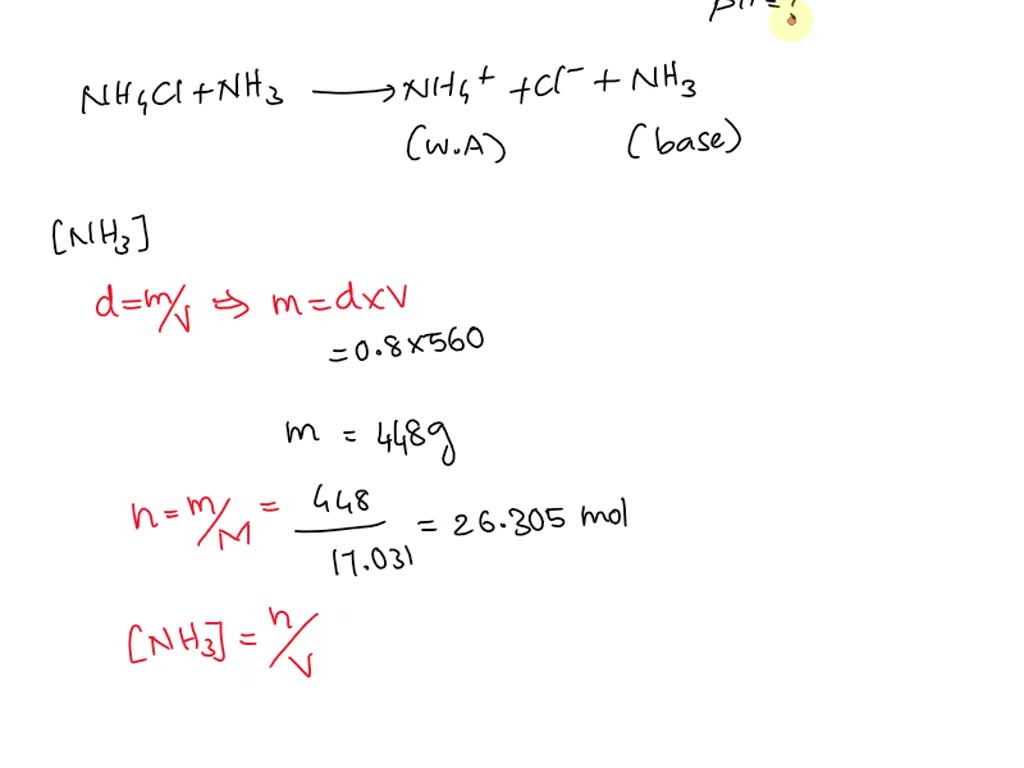 pH=?
NH4Cl + NH3 ⟶ NH4+ + Cl− + NH3
(W.A) (base)
[NH3]
d=m/V ⇒ m=d×V
=0.8×560
m = 448g
n = m/M = 448/17.031 = 26.305 mol
[NH3] = n/V